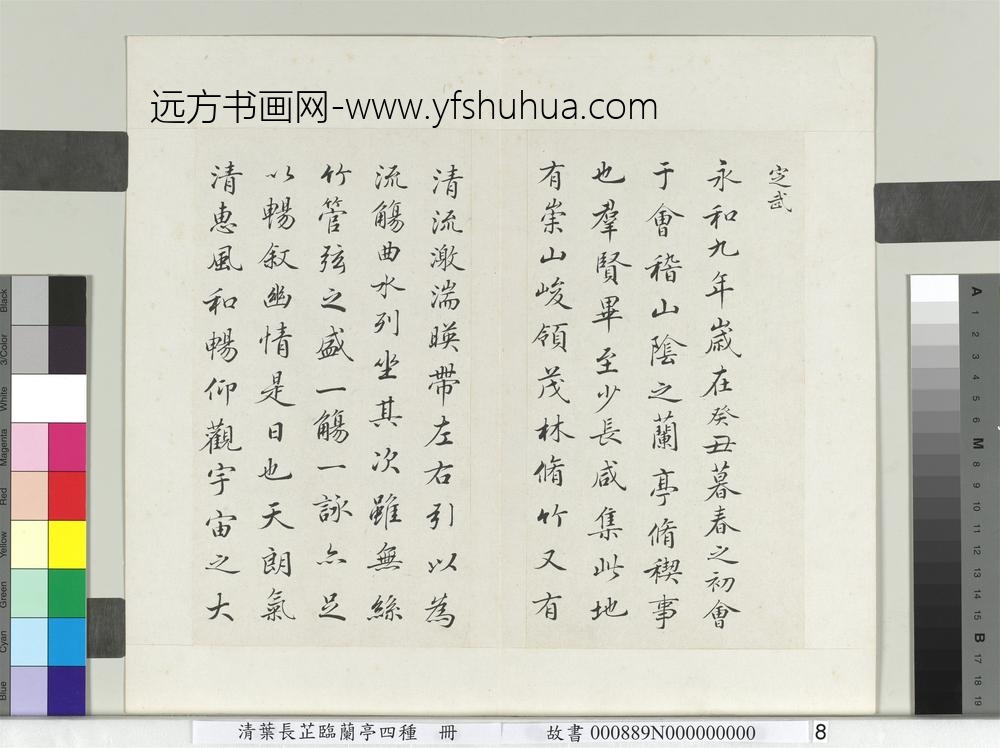 远方书画网-www.yfshuhua.com
定武
永和九年歲在癸丑暮春之初會
于會稽山陰之蘭亭脩稧事
也羣賢畢至少長咸集此地
有崇山峻領茂林脩竹又有
清流激湍暎帶左右引以為
流觴曲水列坐其次雖無絲
竹管弦之盛一觴一詠亦足
以暢叙幽情是日也天朗氣
清惠風和暢仰觀宇宙之大
Black
3/Color
White
Magenta
Red
Yellow
Green
Cyan
Blue
A
1
2
3
4
5
6
M
8
9
10
11
12
13
14
15
B
17
18
19
清葉長芷臨蘭亭四種 冊
故書 000889N000000000
8